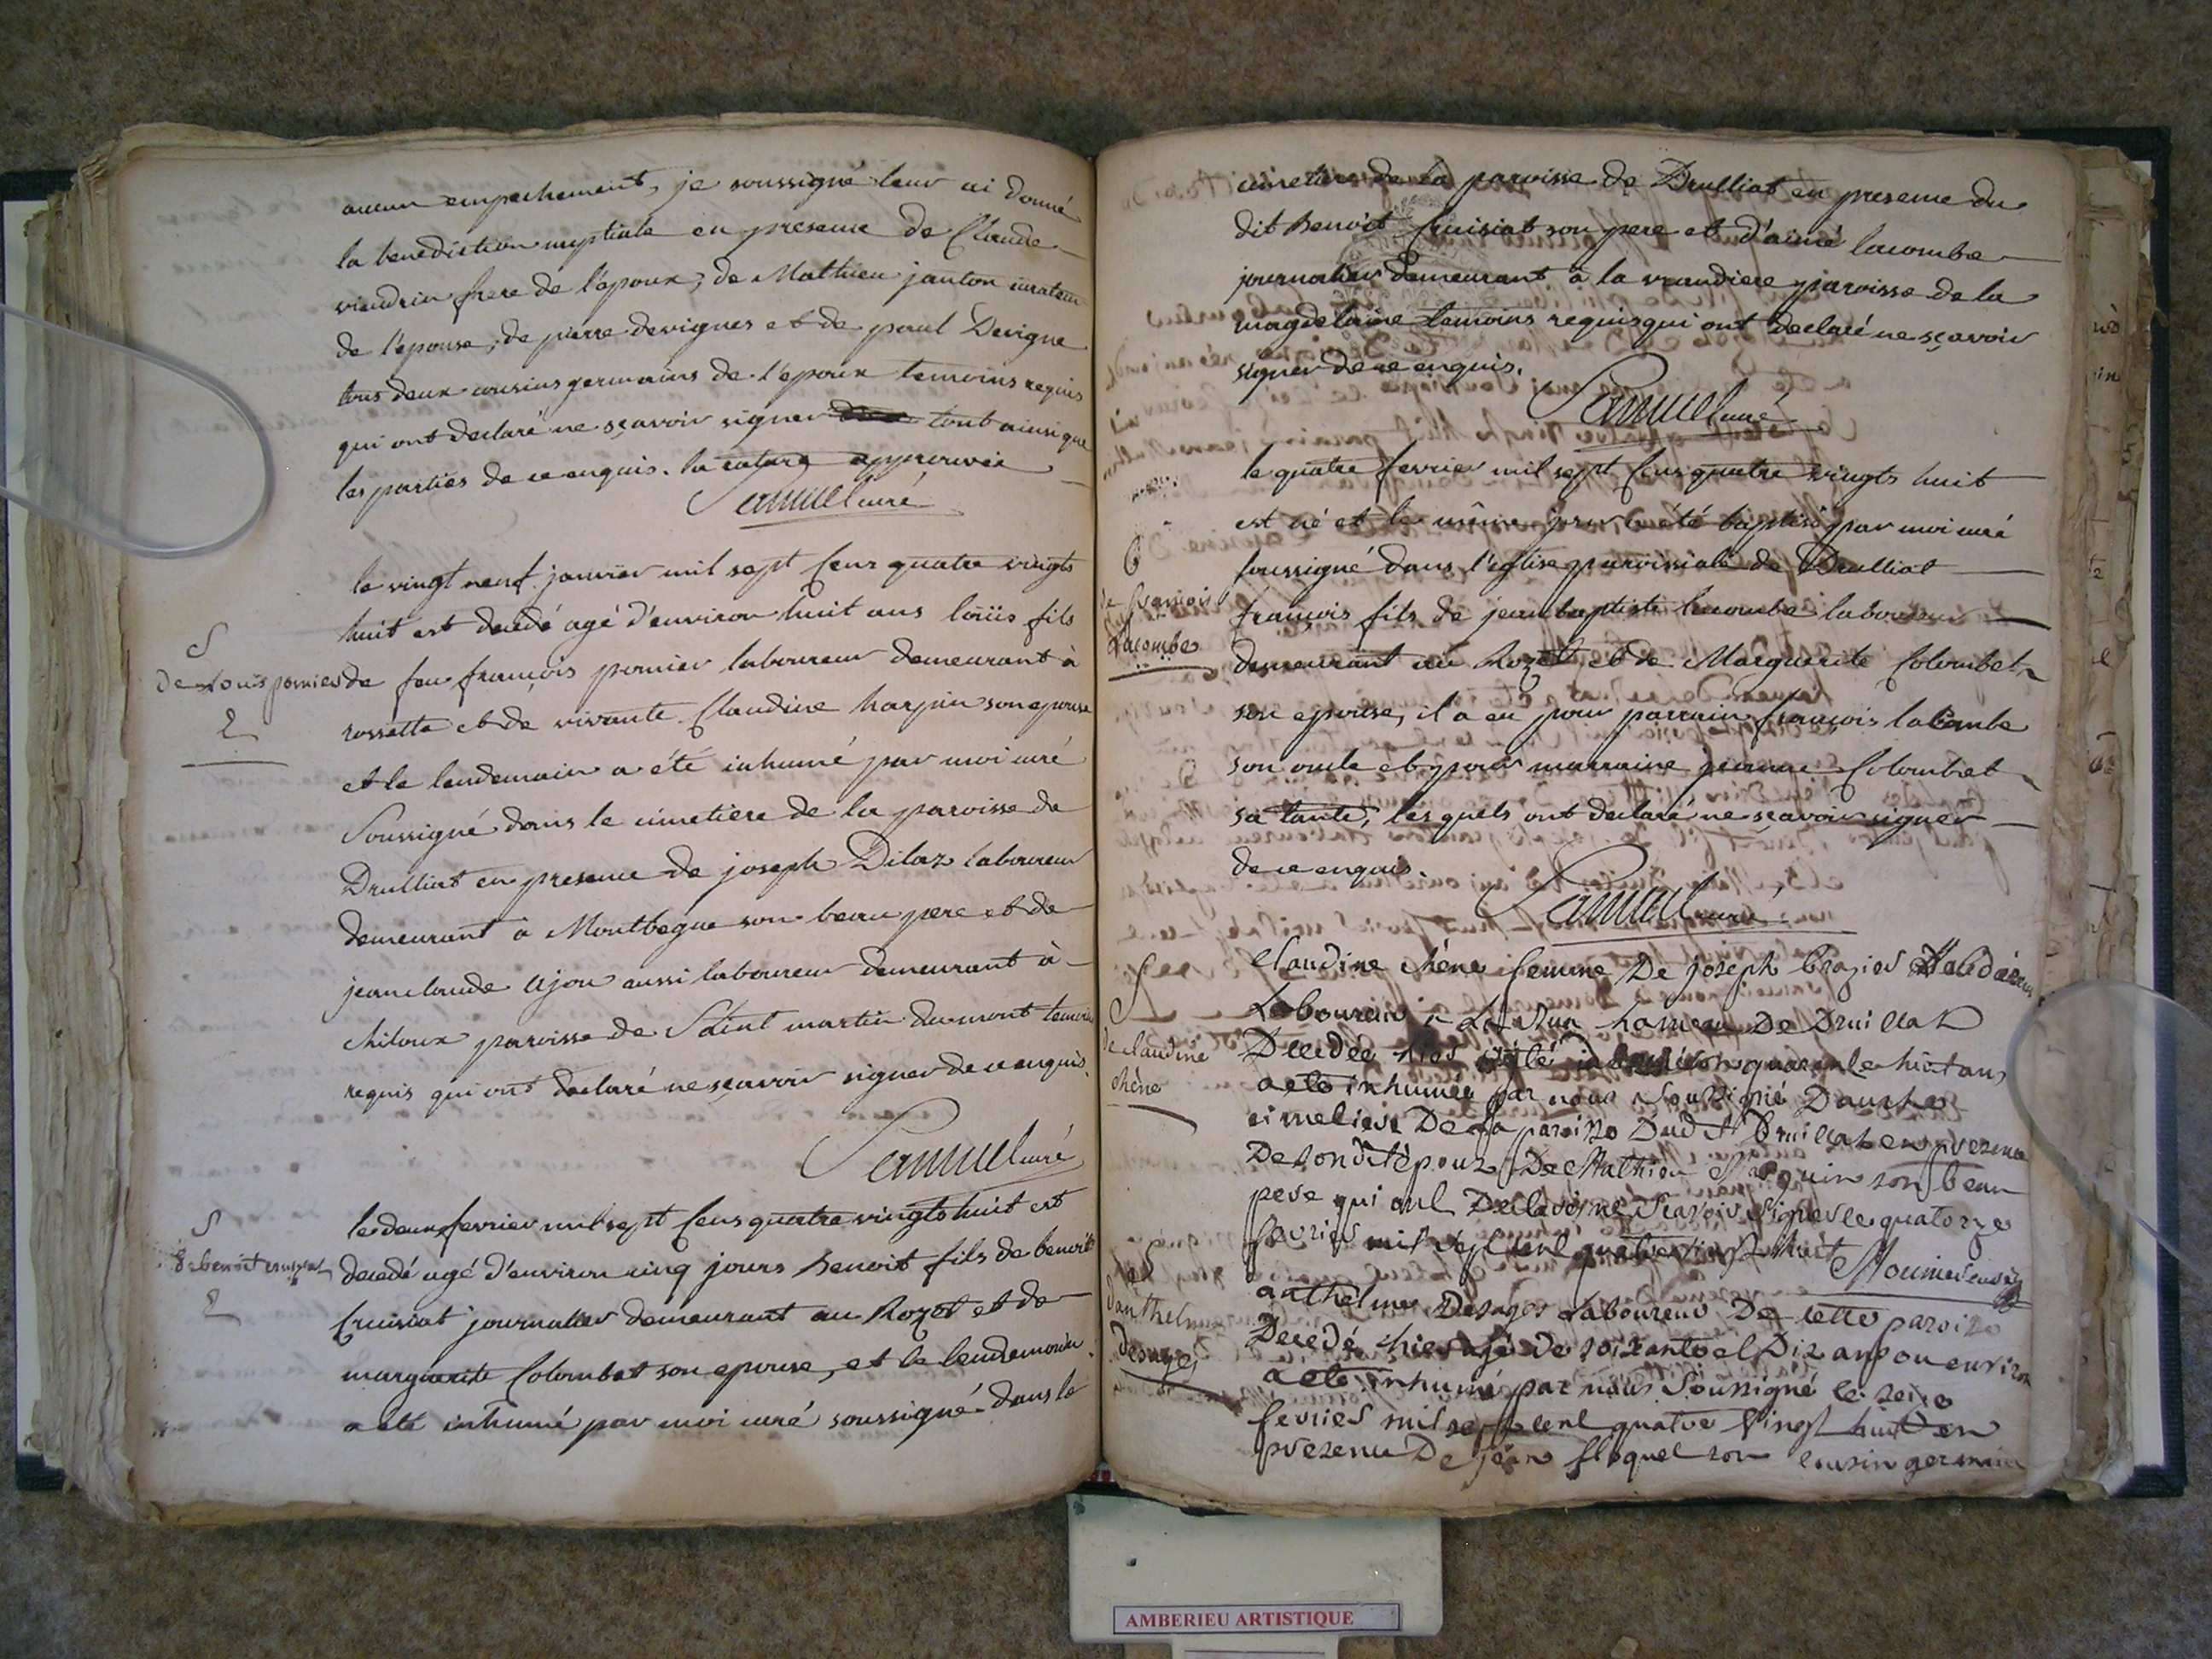 aucun empechement, je soussigné leur ai donné
la benediction nuptiale en presence de Claude
viendrin frere de l'epoux, de Mathieu janton curateur
de l'epouse, de pierre devignes et de paul Devigne
tous deux cousins germains de l'epoux temoins requis
qui ont declaré ne sçavoir signer tout ainsi que
les parties de ce enquis. la rature approuvée
Pamuel curé
le vingt neuf janvier mil sept cens quatre vingts
huit est decedé agé d'environ huit ans loüis fils
de feu françois pernier laboureur demeurant à
rossette et de vivante Claudine harpin son epouse
et le lendemain a été inhumé par moi curé
soussigné dans le cimetiere de la paroisse de
Drulliat en presence de joseph Dilaz laboureur
demeurant à Montbegue son beau pere et de
jean claude ajou aussi laboureur demeurant à
chiloux paroisse de Saint martin du mont temoins
requis qui ont declaré ne sçavoir signer de ce enquis.
Pamuel curé
S
De Louis pernier
le deux fevrier mil sept cens quatre vingts huit est
decedé agé d'environ cinq jours benoit fils de benoit
Cruisiat journalier demeurant au Rozet et de
marguerite Colombet son epouse, et le lendemain
a eté inhumé par moi curé soussigné dans le
S
De benoit cruisiat
cimetiere de la paroisse de Drulliat en presence du
dit benoit Cruisiat son pere et d'aimé lacombe
journalier demeurant à la vrandiere paroisse de la
magdelaine temoins requis qui ont declaré ne sçavoir
signer de ce enquis.
Pamuel curé
le quatre fevrier mil sept cens quatre vingts huit
est né et le même jour a été baptisé par moi curé
soussigné dans l'eglise paroissiale de Drulliat
françois fils de jean baptiste lacombe laboureur
demeurant au Rozet et de Marguerite Colombet
son epouse, il a eu pour parrain françois lacombe
son oncle et pour marraine jeanne Colombet
sa tante, lesquels ont declaré ne sçavoir signer
de ce enquis.
Pamuel curé
de françois
Lacombe
Claudine chêne femme De joseph brazier
Laboureur à hameau De Druillat
Decedee hier quarente huit ans
a ete inhumée par nous Soussigné Dans le
cimetiere De la paroisse Dud Druillat en prezence
De son dit epoux De Mathieu son beau
pere qui ont Declaré ne Scavoir Signer le quatorze
fevrier mil sept cent quatre vingt huit
S
de claudine
chêne
anthelme Desages Laboureur De cette paroisse
Decedé hier agé de soixante et Dix ans ou environ
a ete inhumé par nous Soussigné le seize
fevrier mil sept cent quatre vingt huit en
prezence De jean floquet son cousin germain
S
d'anthelme
desages
AMBERIEU ARTISTIQUE